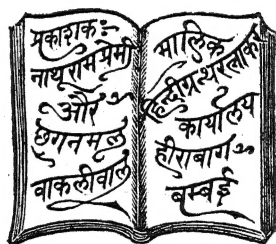 प्रकाशक:
नाथूराम प्रेमी
और
छगनमल
वाकलीवाल
मालिक
हिन्दीग्रन्थरत्नाकर
कार्यालय
हीराबाग
बम्बई